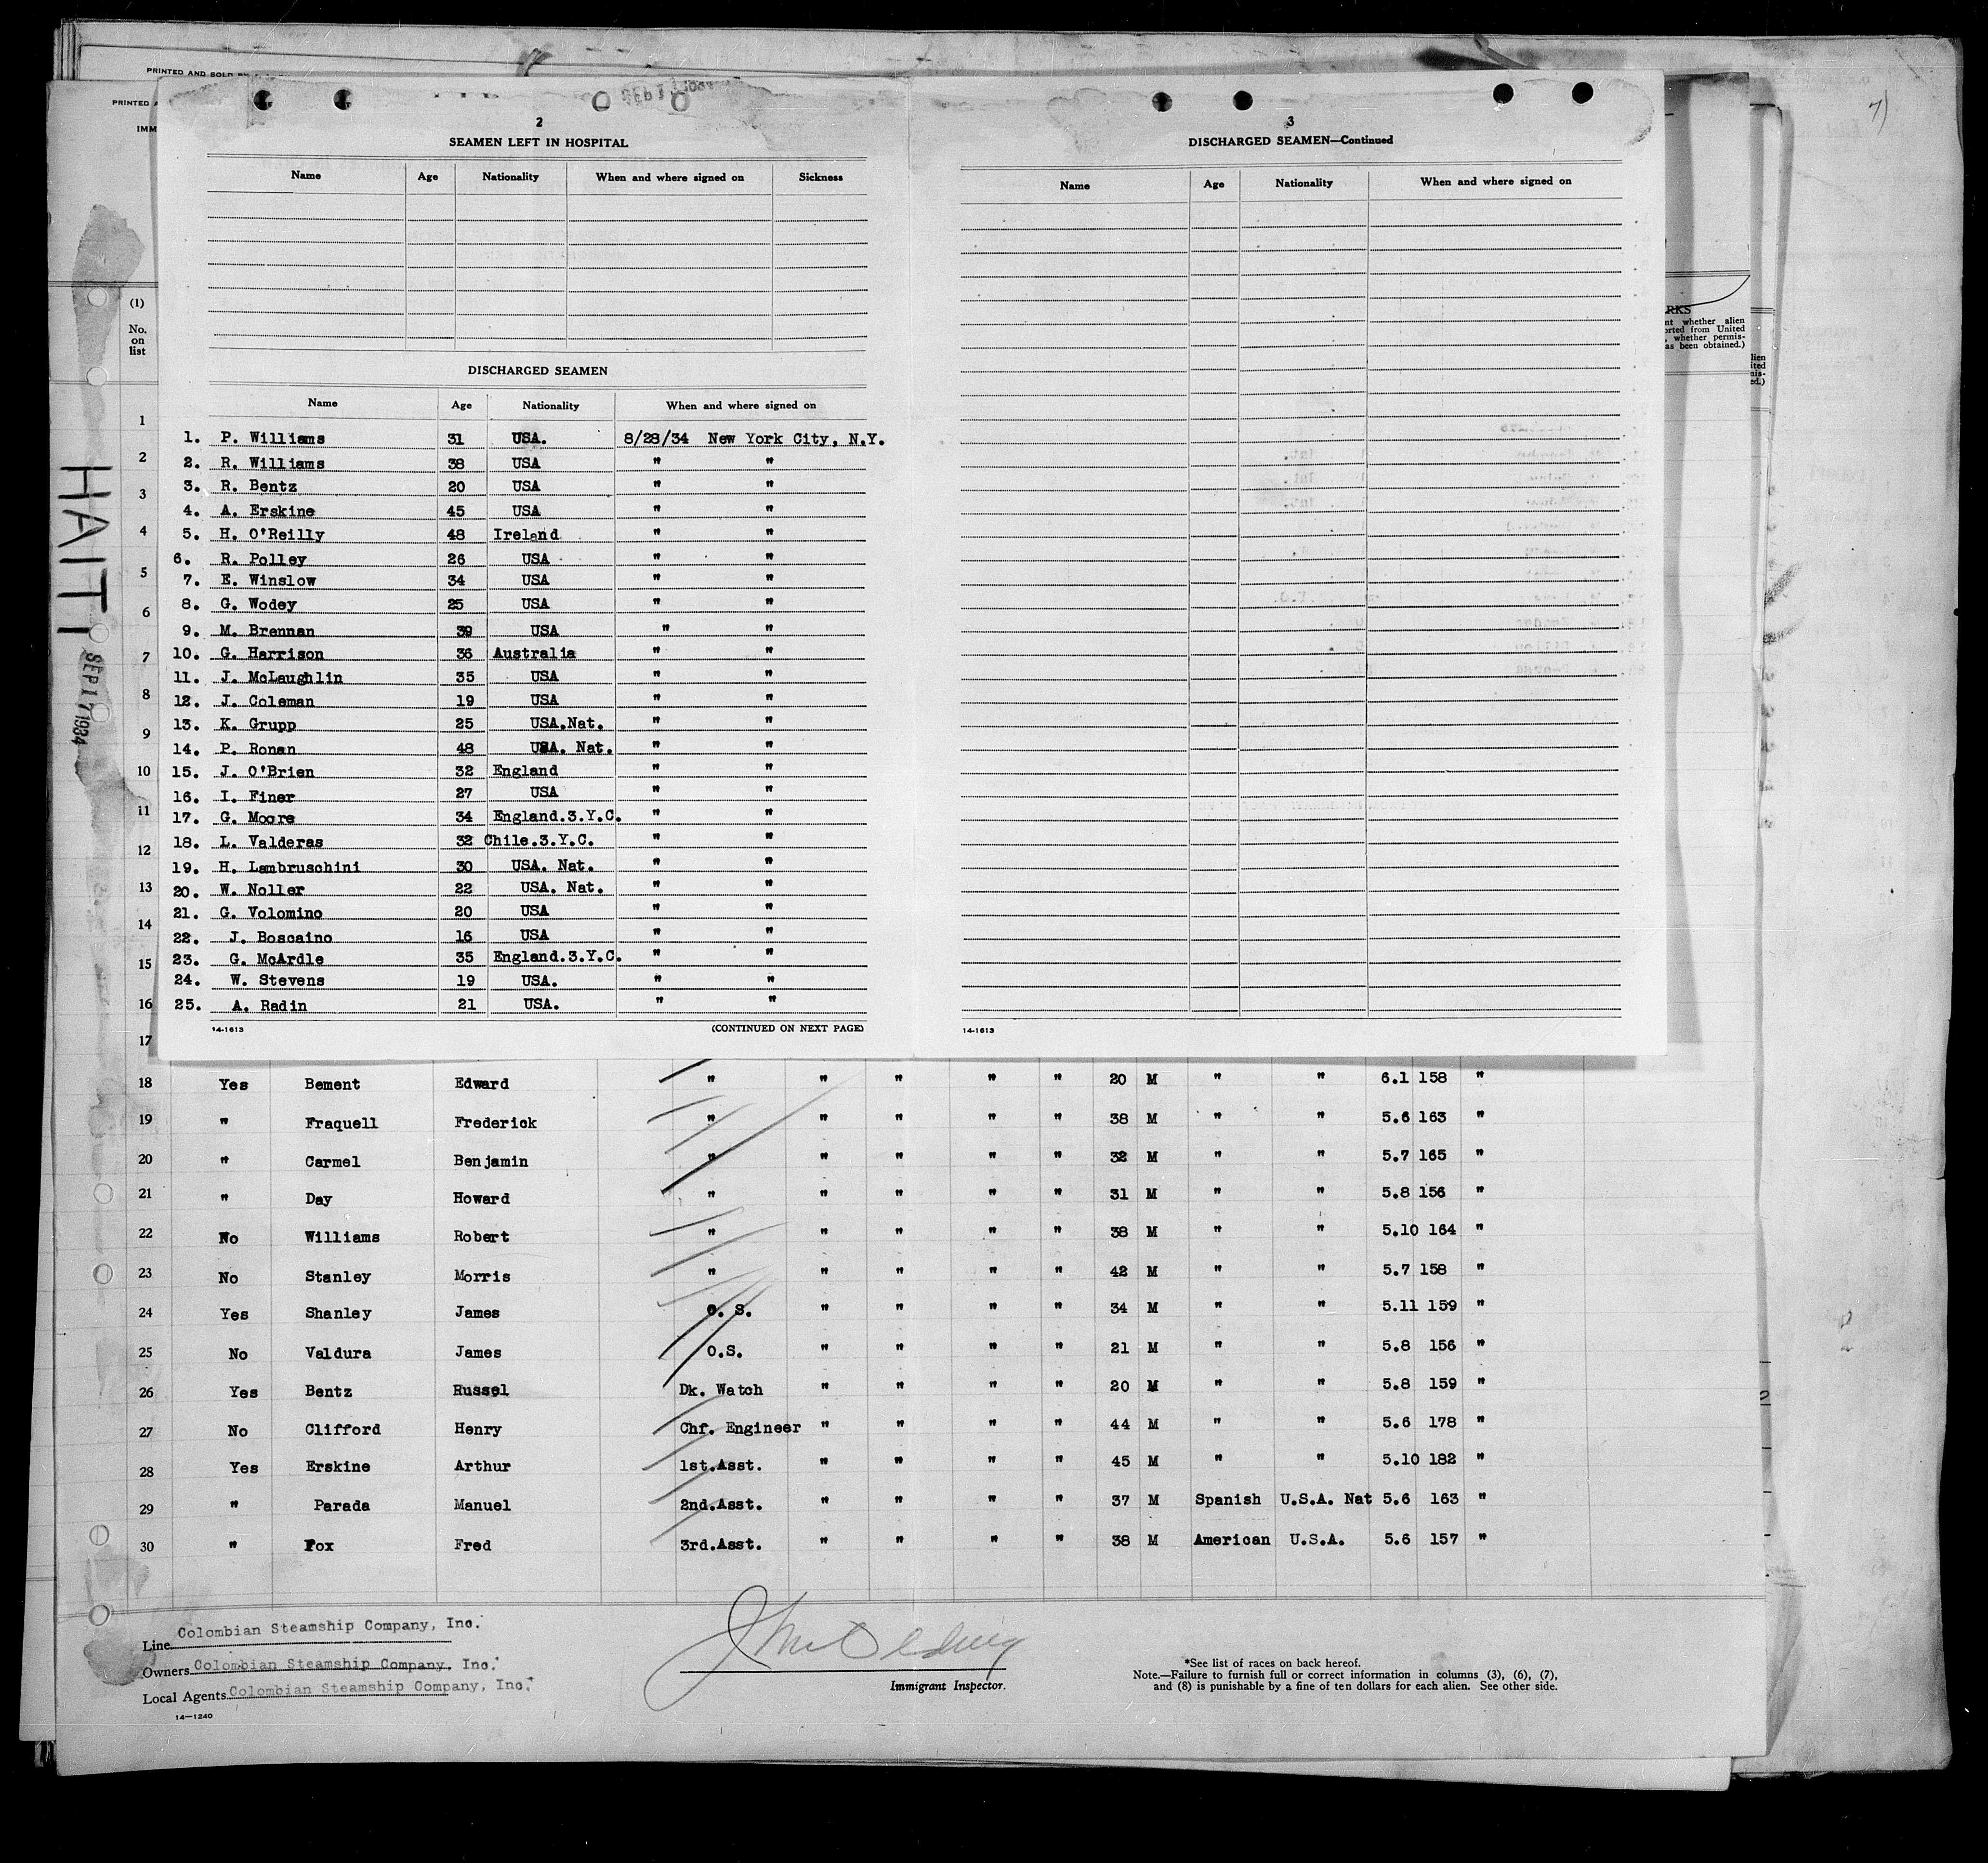 PRINTED AND SOLD BY
PRINTED
IMM
7)
SEP 17 1934
2
SEAMEN LEFT IN HOSPITAL
Name Age Nationality When and where signed on Sickness
DISCHARGED SEAMEN
Name Age Nationality When and where signed on
1. P. Williams 31 USA. 8/28/34 New York City, N.Y.
2. R. Williams 38 USA " "
3. R. Bentz 20 USA " "
4. A. Erskine 45 USA " "
5. H. O'Reilly 48 Ireland " "
6. R. Polley 26 USA " "
7. E. Winslow 34 USA " "
8. G. Wodey 25 USA " "
9. M. Brennan 39 USA " "
10. G. Harrison 36 Australia " "
11. J. McLaughlin 35 USA " "
12. J. Coleman 19 USA " "
13. K. Grupp 25 USA.Nat. " "
14. P. Ronan 48 USA. Nat. " "
15. J. O'Brien 32 England " "
16. I. Finer 27 USA " "
17. G. Moore 34 England.3.Y.C. " "
18. L. Valderas 32 Chile.3.Y.C. " "
19. H. Lambruschini 30 USA. Nat. " "
20. W. Noller 22 USA. Nat. " "
21. G. Volomino 20 USA " "
22. J. Boscaino 16 USA " "
23. G. McArdle 35 England.3.Y.C. " "
24. W. Stevens 19 USA. " "
25. A. Radin 21 USA. " "
14-1613 (CONTINUED ON NEXT PAGE)
3
DISCHARGED SEAMEN—Continued
Name Age Nationality When and where signed on
14-1613
RKS
nt whether alien
orted from United
, whether permis-
as been obtained.)
lien
ited
mis-
ed.)
HAITI
SEP 17 1934
(1)
No.
on
list
1
2
3
4
5
6
7
8
9
10
11
12
13
14
15
16
17
18 Yes Bement Edward " " " " " 20 M " " 6.1 158 "
19 " Fraquell Frederick " " " " " 38 M " " 5.6 163 "
20 " Carmel Benjamin " " " " " 32 M " " 5.7 165 "
21 " Day Howard " " " " " 31 M " " 5.8 156 "
22 No Williams Robert " " " " " 38 M " " 5.10 164 "
23 No Stanley Morris " " " " " 42 M " " 5.7 158 "
24 Yes Shanley James O. S. " " " " 34 M " " 5.11 159 "
25 No Valdura James O.S. " " " " 21 M " " 5.8 156 "
26 Yes Bentz Russel Dk. Watch " " " " 20 M " " 5.8 159 "
27 No Clifford Henry Chf. Engineer " " " " 44 M " " 5.6 178 "
28 Yes Erskine Arthur 1st.Asst. " " " " 45 M " " 5.10 182 "
29 " Parada Manuel 2nd.Asst. " " " " 37 M Spanish U.S.A. Nat 5.6 163 "
30 " Fox Fred 3rd.Asst. " " " " 38 M American U.S.A. 5.6 157 "
Line Colombian Steamship Company, Inc.
Owners Colombian Steamship Company, Inc.
Local Agents Colombian Steamship Company, Inc.
14—1240
Immigrant Inspector.
*See list of races on back hereof.
Note.—Failure to furnish full or correct information in columns (3), (6), (7),
and (8) is punishable by a fine of ten dollars for each alien. See other side.